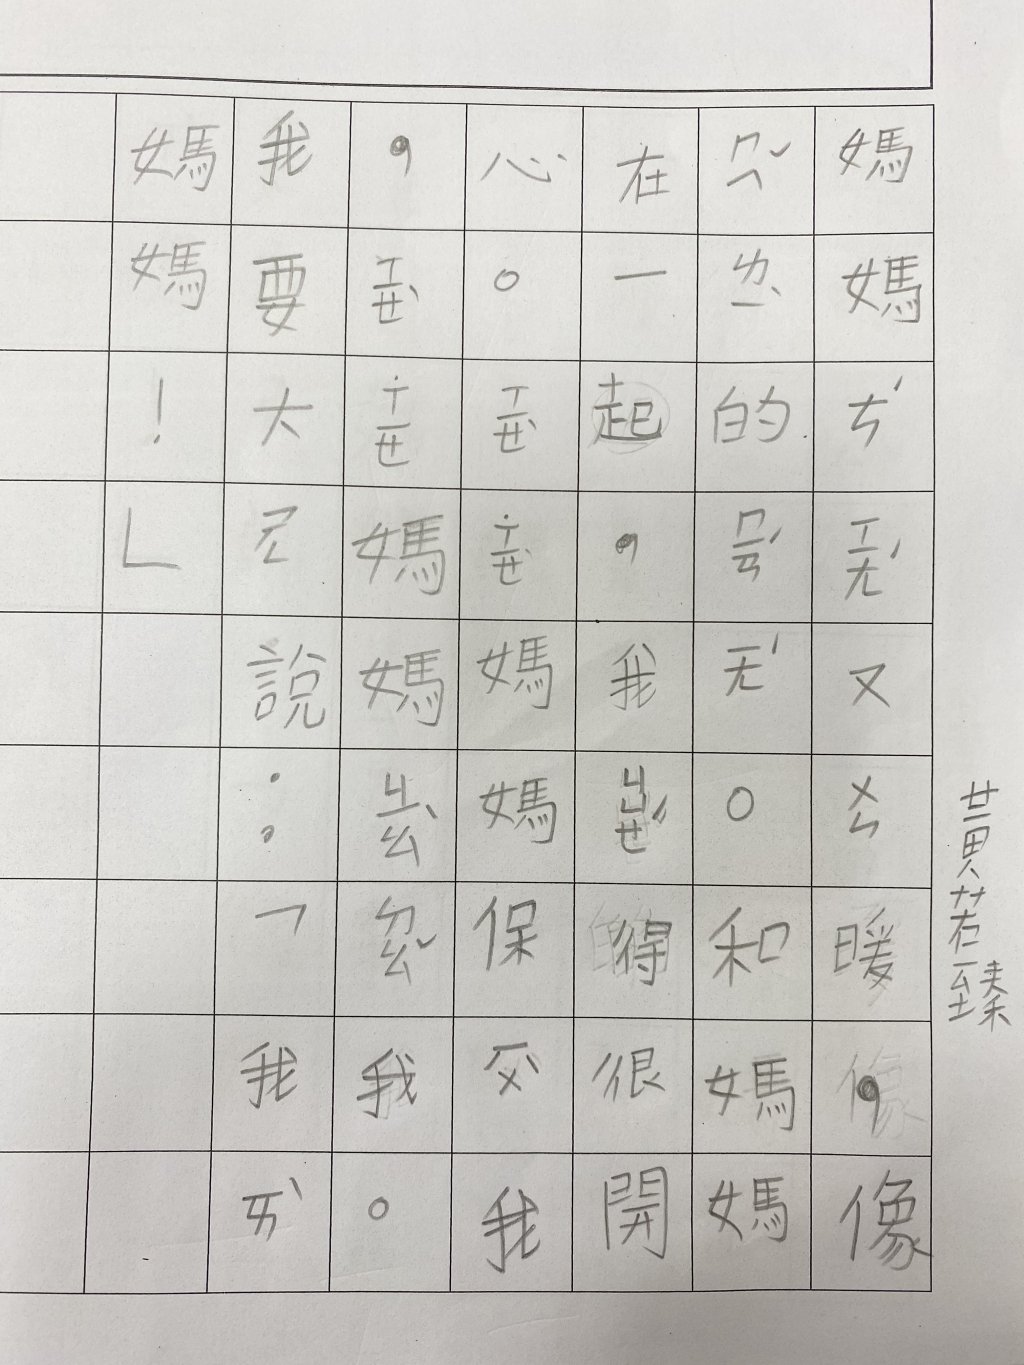 黃若臻
媽媽ㄘˊㄒㄧㄤˊ又ㄨㄣ暖，像
ㄇㄟˇㄌㄧˋ的ㄇㄧㄢˊㄧㄤˊ。和媽媽
在一起，我ㄐㄩㄝˊ得很開
心。ㄒㄧㄝˋ˙ㄒㄧㄝ媽媽保ㄏㄨˋ我
，ㄒㄧㄝˋ˙ㄒㄧㄝ媽媽ㄐㄧㄠˋㄉㄠˇ我。
我要大ㄕㄥ說：「我ㄞˋ
媽媽！」